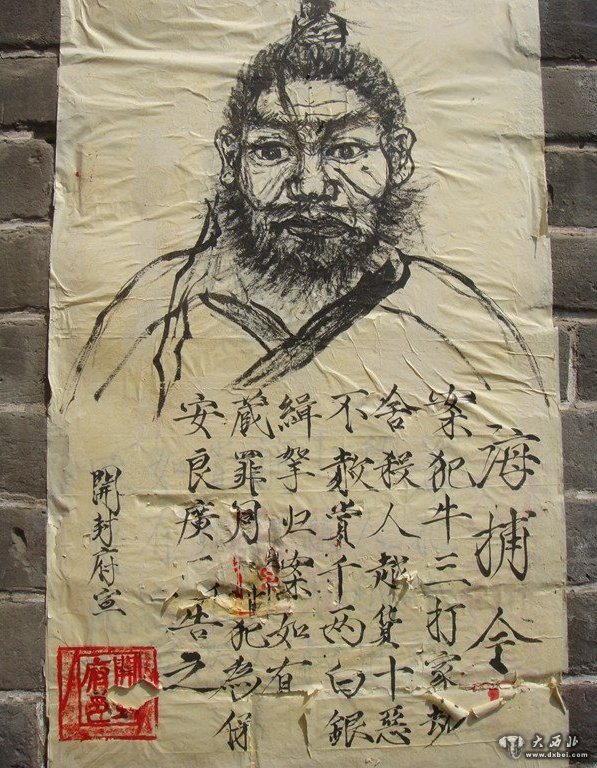 海捕令
案犯牛三打家劫
舍殺人越貨十惡
不赦賞千两白銀
緝拏归案如有
藏罪同犯者
安良廣告之
開封府宣
大西北
www.dxbei.com